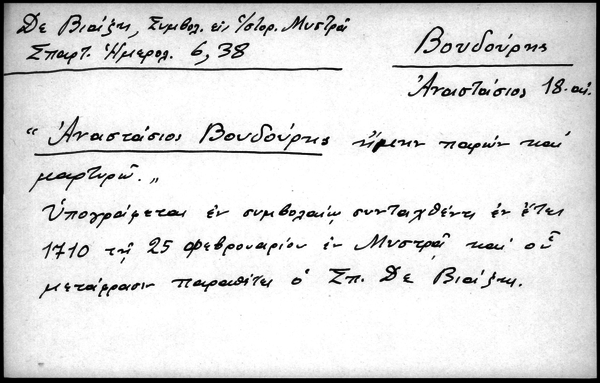 Δε Βιάζη, Συμβολ. εις Ιστορ. Μυστρά
Σπαρτ. Ημερολ. 6, 38
Βουδούρης
Αναστάσιος 18. αι.
"Ἀναστάσιος Βουδούρης ἤμην παρών καί
μαρτυρῶ."
Ὑπογράφεται ἐν συμβολαίῳ συνταχθέντι ἐν ἔτει
1710 τῇ 25 Φεβρουαρίου ἐν Μυστρᾷ καί οὗ
μετάφρασιν παραθέτει ὁ Σπ. Δε Βιάζης.